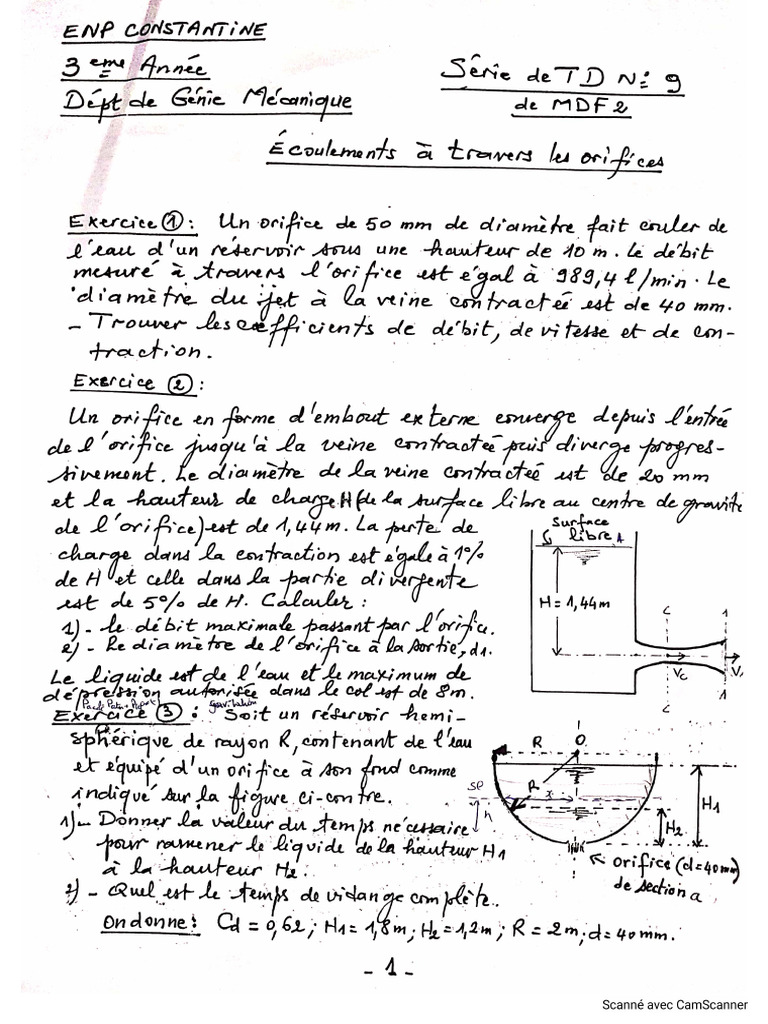 ENP CONSTANTINE
3eme Année
Série de TD N: 9
Dépt de Génie Mécanique
de MDF2
Écoulements à travers les orifices
Exercice 1: Un orifice de 50 mm de diamètre fait couler de
l'eau d'un réservoir sous une hauteur de 10 m. Le débit
mesuré à travers l'orifice est égal à 989,4 l/min. Le
diamètre du jet à la veine contractée est de 40 mm.
- Trouver les coefficients de débit, de vitesse et de con-
traction.
Exercice 2:
Un orifice en forme d'embout externe converge depuis l'entrée
de l'orifice jusqu'à la veine contractée puis diverge progres-
sivement. Le diamètre de la veine contractée est de 20 mm
et la hauteur de charge H (de la surface libre au centre de gravité
de l'orifice) est de 1,44m. La perte de
charge dans la contraction est égale à 1%
de H et celle dans la partie divergente
est de 5% de H. Calculer:
1)- le débit maximale passant par l'orifice.
2)- Le diamètre de l'orifice à la sortie, d1.
Le liquide est de l'eau et le maximum de
dépression autorisée dans le col est de 8m.
surface
libre
H = 1,44m
C
1
Vc
V1
C
1
Exercice 3: Soit un réservoir hemi-
sphérique de rayon R, contenant de l'eau
et équipé d'un orifice à son fond comme
indiqué sur la figure ci-contre.
1)- Donner la valeur du temps nécessaire
pour ramener le liquide de la hauteur H1
à la hauteur H2.
2)- Quel est le temps de vidange complète.
On donne: Cd = 0,62; H1 = 1,8m; H2 = 1,2m; R = 2m; d = 40mm.
R
O
R
x
h
H1
H2
orifice (d=40mm)
de section a
- 1 -
Scanné avec CamScanner